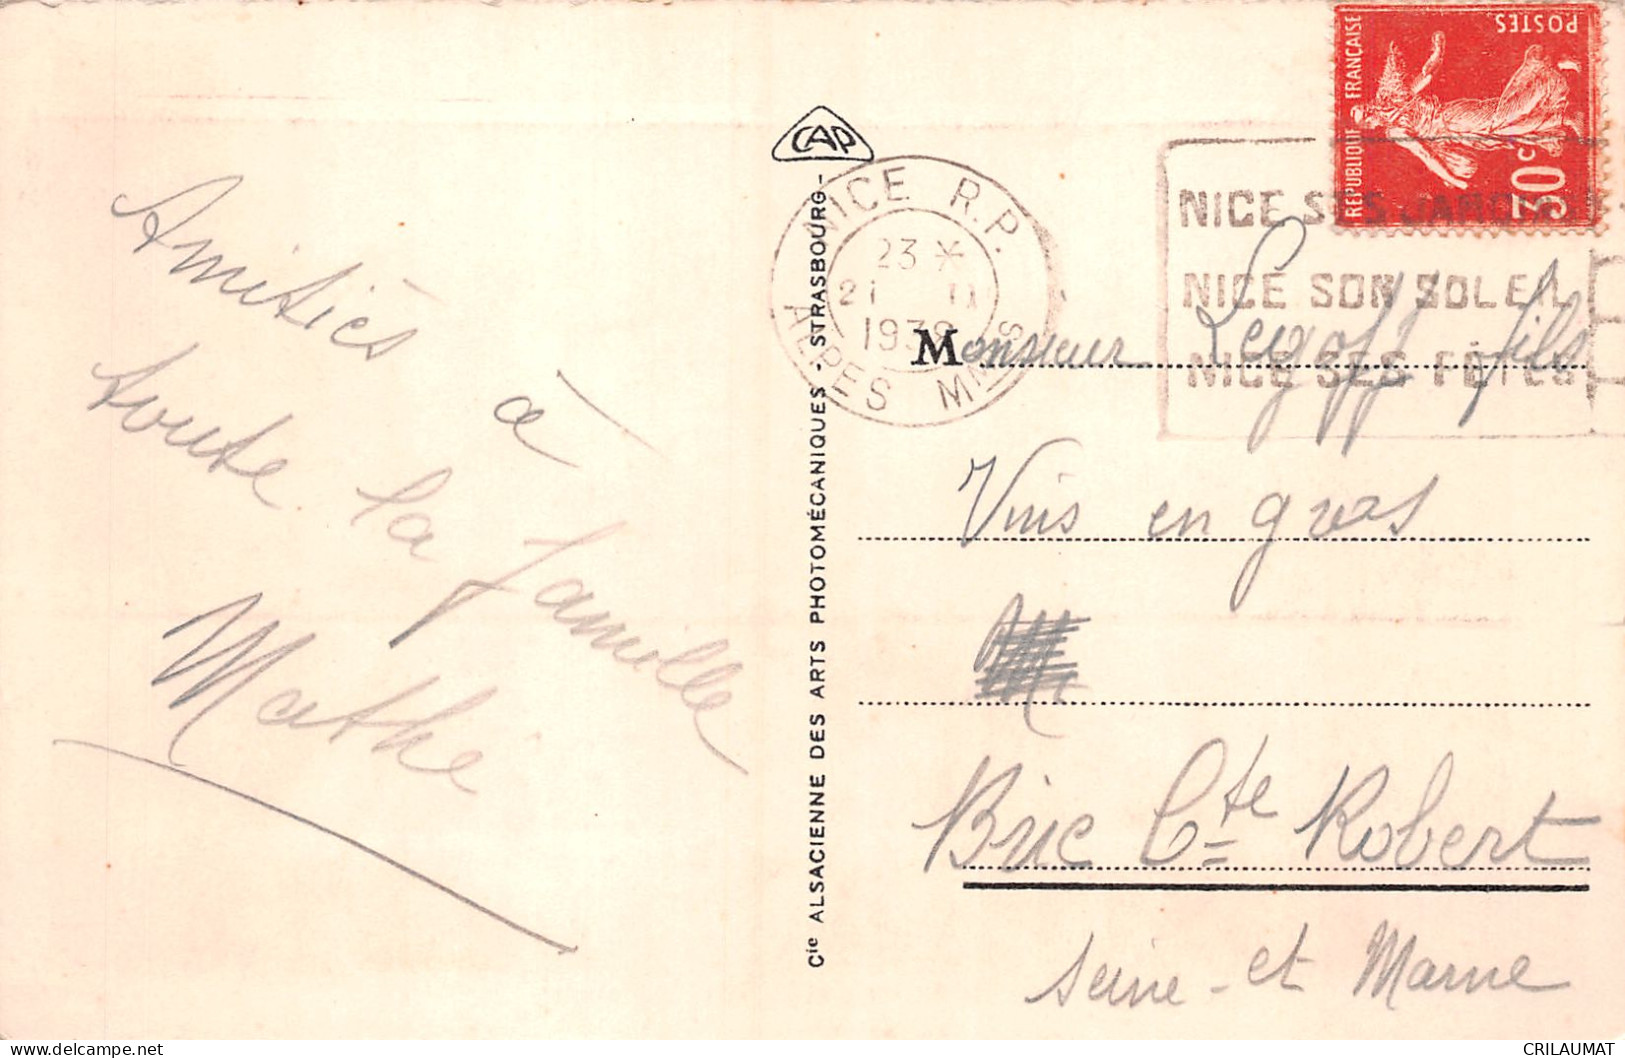 Amitiés à
toute la famille
Mathé
Cie ALSACIENNE DES ARTS PHOTOMÉCANIQUES - STRASBOURG -
CAP
NICE R.P.
23 *
21 II
193
ALPES MMES
REPUBLIQUE FRANÇAISE
POSTES
30c
NICE SES
NICE SON SOLEIL
NICE SES FÊTES
Monsieur Legoff fils
Vins en gros
Brie Cte Robert
Seine-et Marne
CRILAUMAT